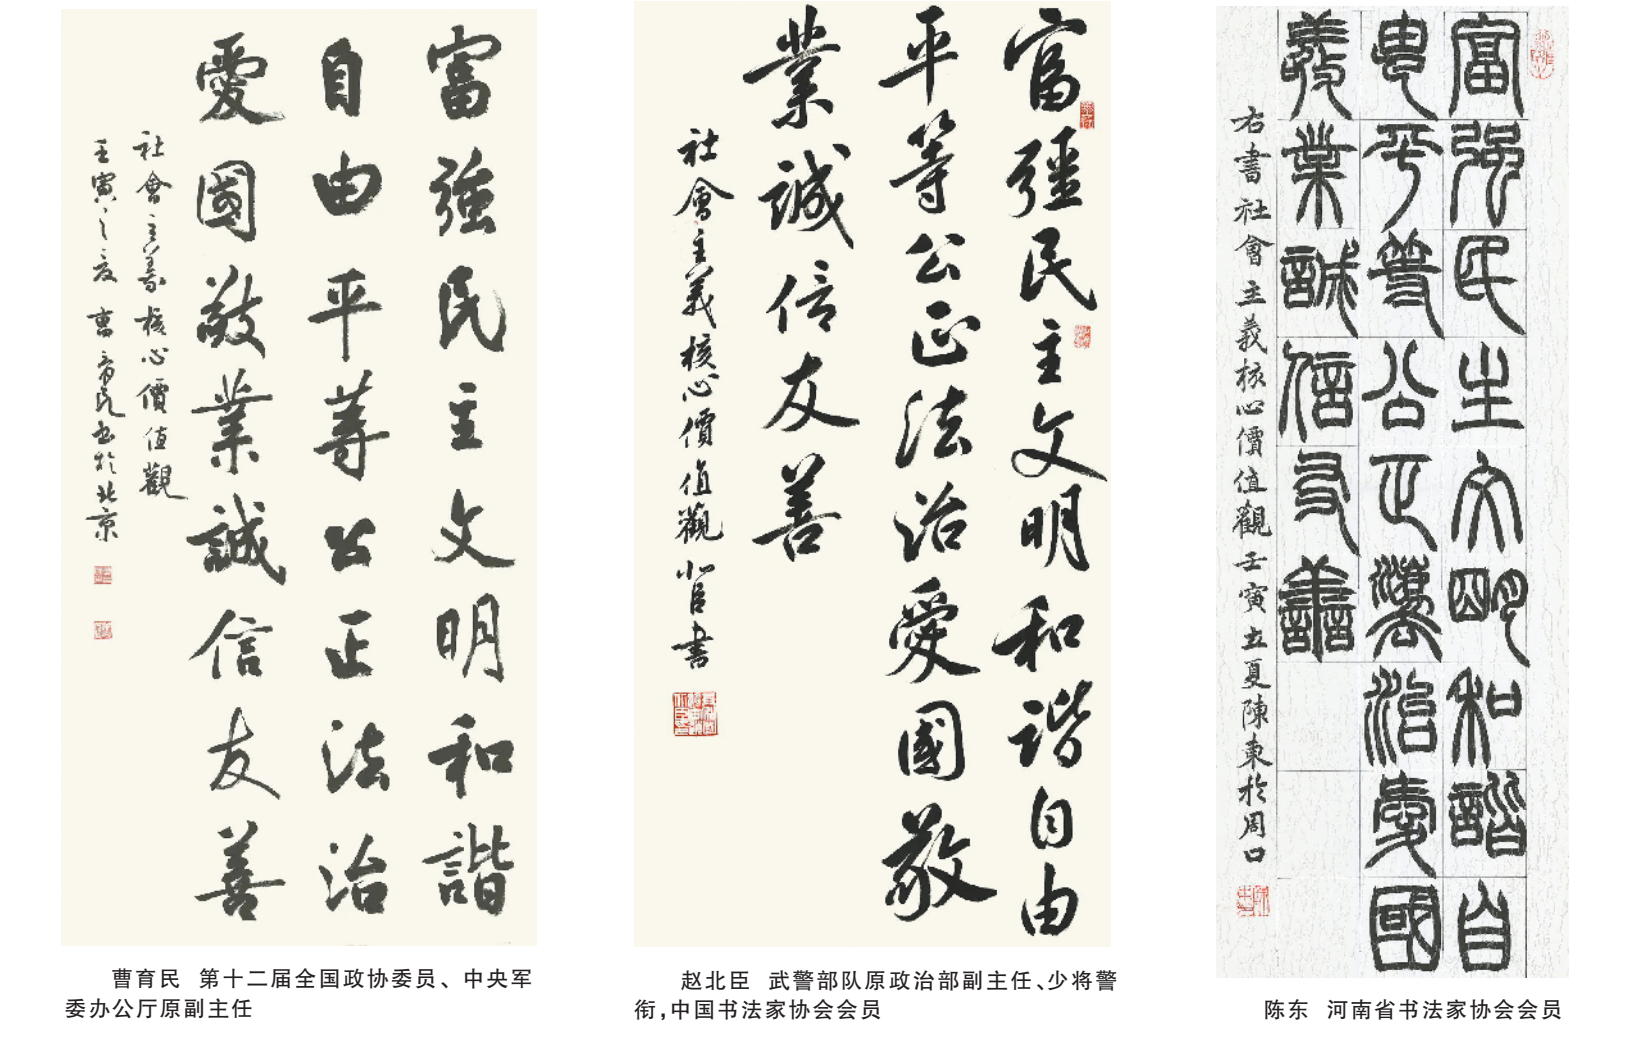 富強民主文明和諧
自由平等公正法治
愛國敬業誠信友善
社會主義核心價值觀
壬寅之夏 曹育民书於北京
曹育民 第十二届全国政协委员、中央军
委办公厅原副主任
富彊民主文明和諧自由
平等公正法治愛國敬
業誠信友善
社會主義核心價值觀 北臣書
赵北臣 武警部队原政治部副主任、少将警
衔，中国书法家协会会员
富强民主文明和諧自
由平等公正灋治愛國
敬業誠信友善
右書社會主義核心價值觀壬寅立夏陳東於周口
陈东 河南省书法家协会会员